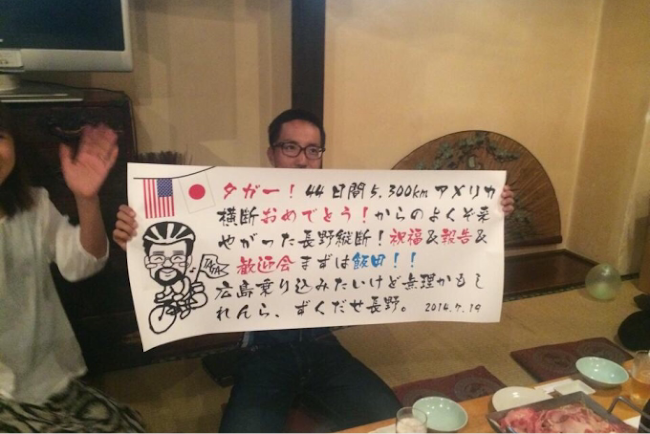 タガー！ 44日間5,300kmアメリカ
横断おめでとう！からのよくぞ来
やがった長野縦断！祝福&報告&
歓迎会まずは飯田！！
広島乗り込みたいけど無理かもし
れんら、ずくだせ長野。 2014.7.19